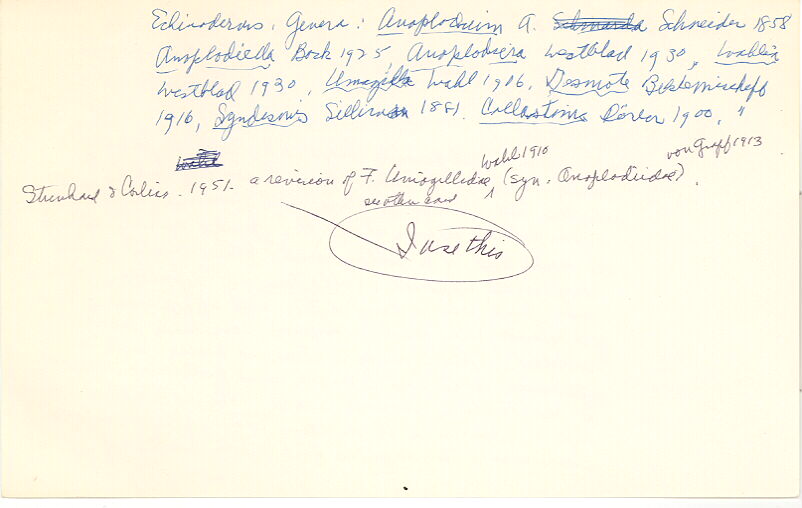 Echinoderms. Genera: Anoplodium A. Schneider 1858
Anoplodiella Bock 1925, Anoplodiera Westblad 1930, Wahlia
Westblad 1930, Umagilla Wahl 1906, Desmote Beklemischeff
1916, Syndesmis Silliman 1881. Collastoma Dörler 1900, "
Wahl 1910 von Graff 1913
Stunkard & Corliss. 1951. a revision of F. Umagillidae ^ (syn. Anoplodiidae).
I use this